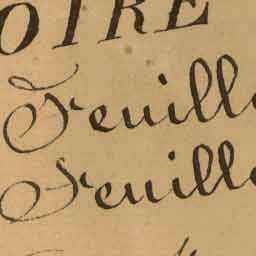 OIRE
Feuille
Feuille